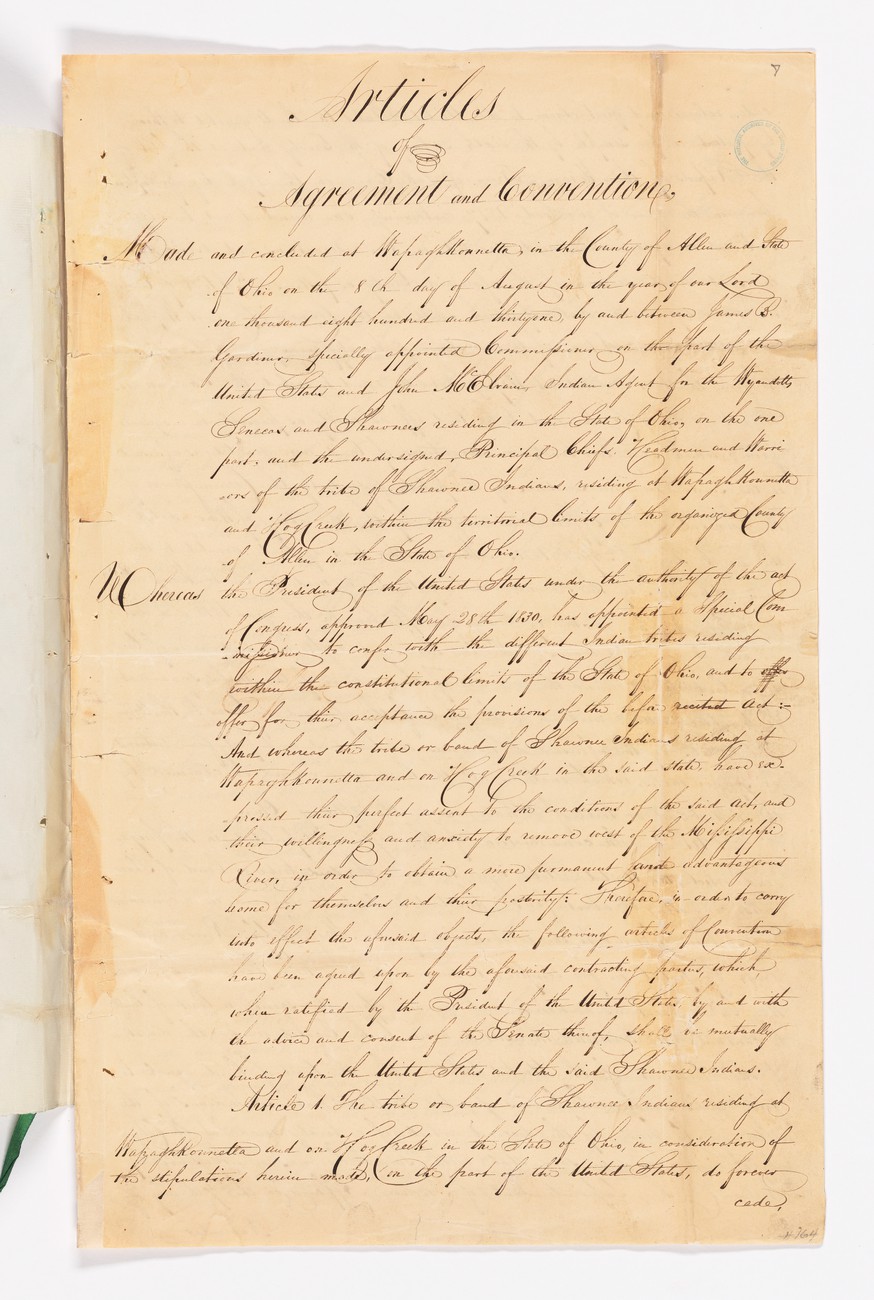 Articles
of
Agreement and Convention
Made and concluded at Wapaghkonnetta, in the County of Allen and State
of Ohio on the 8th day of August in the year of our Lord
one thousand eight hundred and thirtyone, by and between James B.
Gardiner, specially appointed Commissioner on the part of the
United States and John McElvain, Indian Agent for the Wyandotts,
Senecas and Shawnees residing in the State of Ohio, on the one
part, and the undersigned, Principal Chiefs, Headmen and Warri
ors of the tribe of Shawnee Indians, residing at Wapaghkonnetta
and Hog Creek, within the territorial limits of the organized County
of Allen in the State of Ohio.
Whereas the President of the United States under the authority of the act
of Congress, approved May 28th 1830, has appointed a Special Com
-missioner to confer with the different Indian tribes residing
within the constitutional limits of the State of Ohio, and to offer
offer for their acceptance the provisions of the before recited act:-
And whereas the tribe or band of Shawnee Indians residing at
Wapaghkonnetta and on Hog Creek in the said state, have ex-
pressed their perfect assent to the conditions of the said act, and
their willingness and anxiety to remove west of the Mississippi
River, in order to obtain a more permanent and advantageous
home for themselves and their posterity: Therefore, in order to carry
into effect the aforesaid objects, the following articles of Convention
have been agreed upon by the aforesaid contracting parties, which,
when ratified by the President of the United States, by and with
the advice and consent of the Senate thereof, shall be mutually
binding upon the United States and the said Shawnee Indians.
Article 1. The tribe or band of Shawnee Indians residing at
Wapaghkonnetta and on Hog Creek in the State of Ohio, in consideration of
the stipulations herein made, on the part of the United States, do forever
cede,